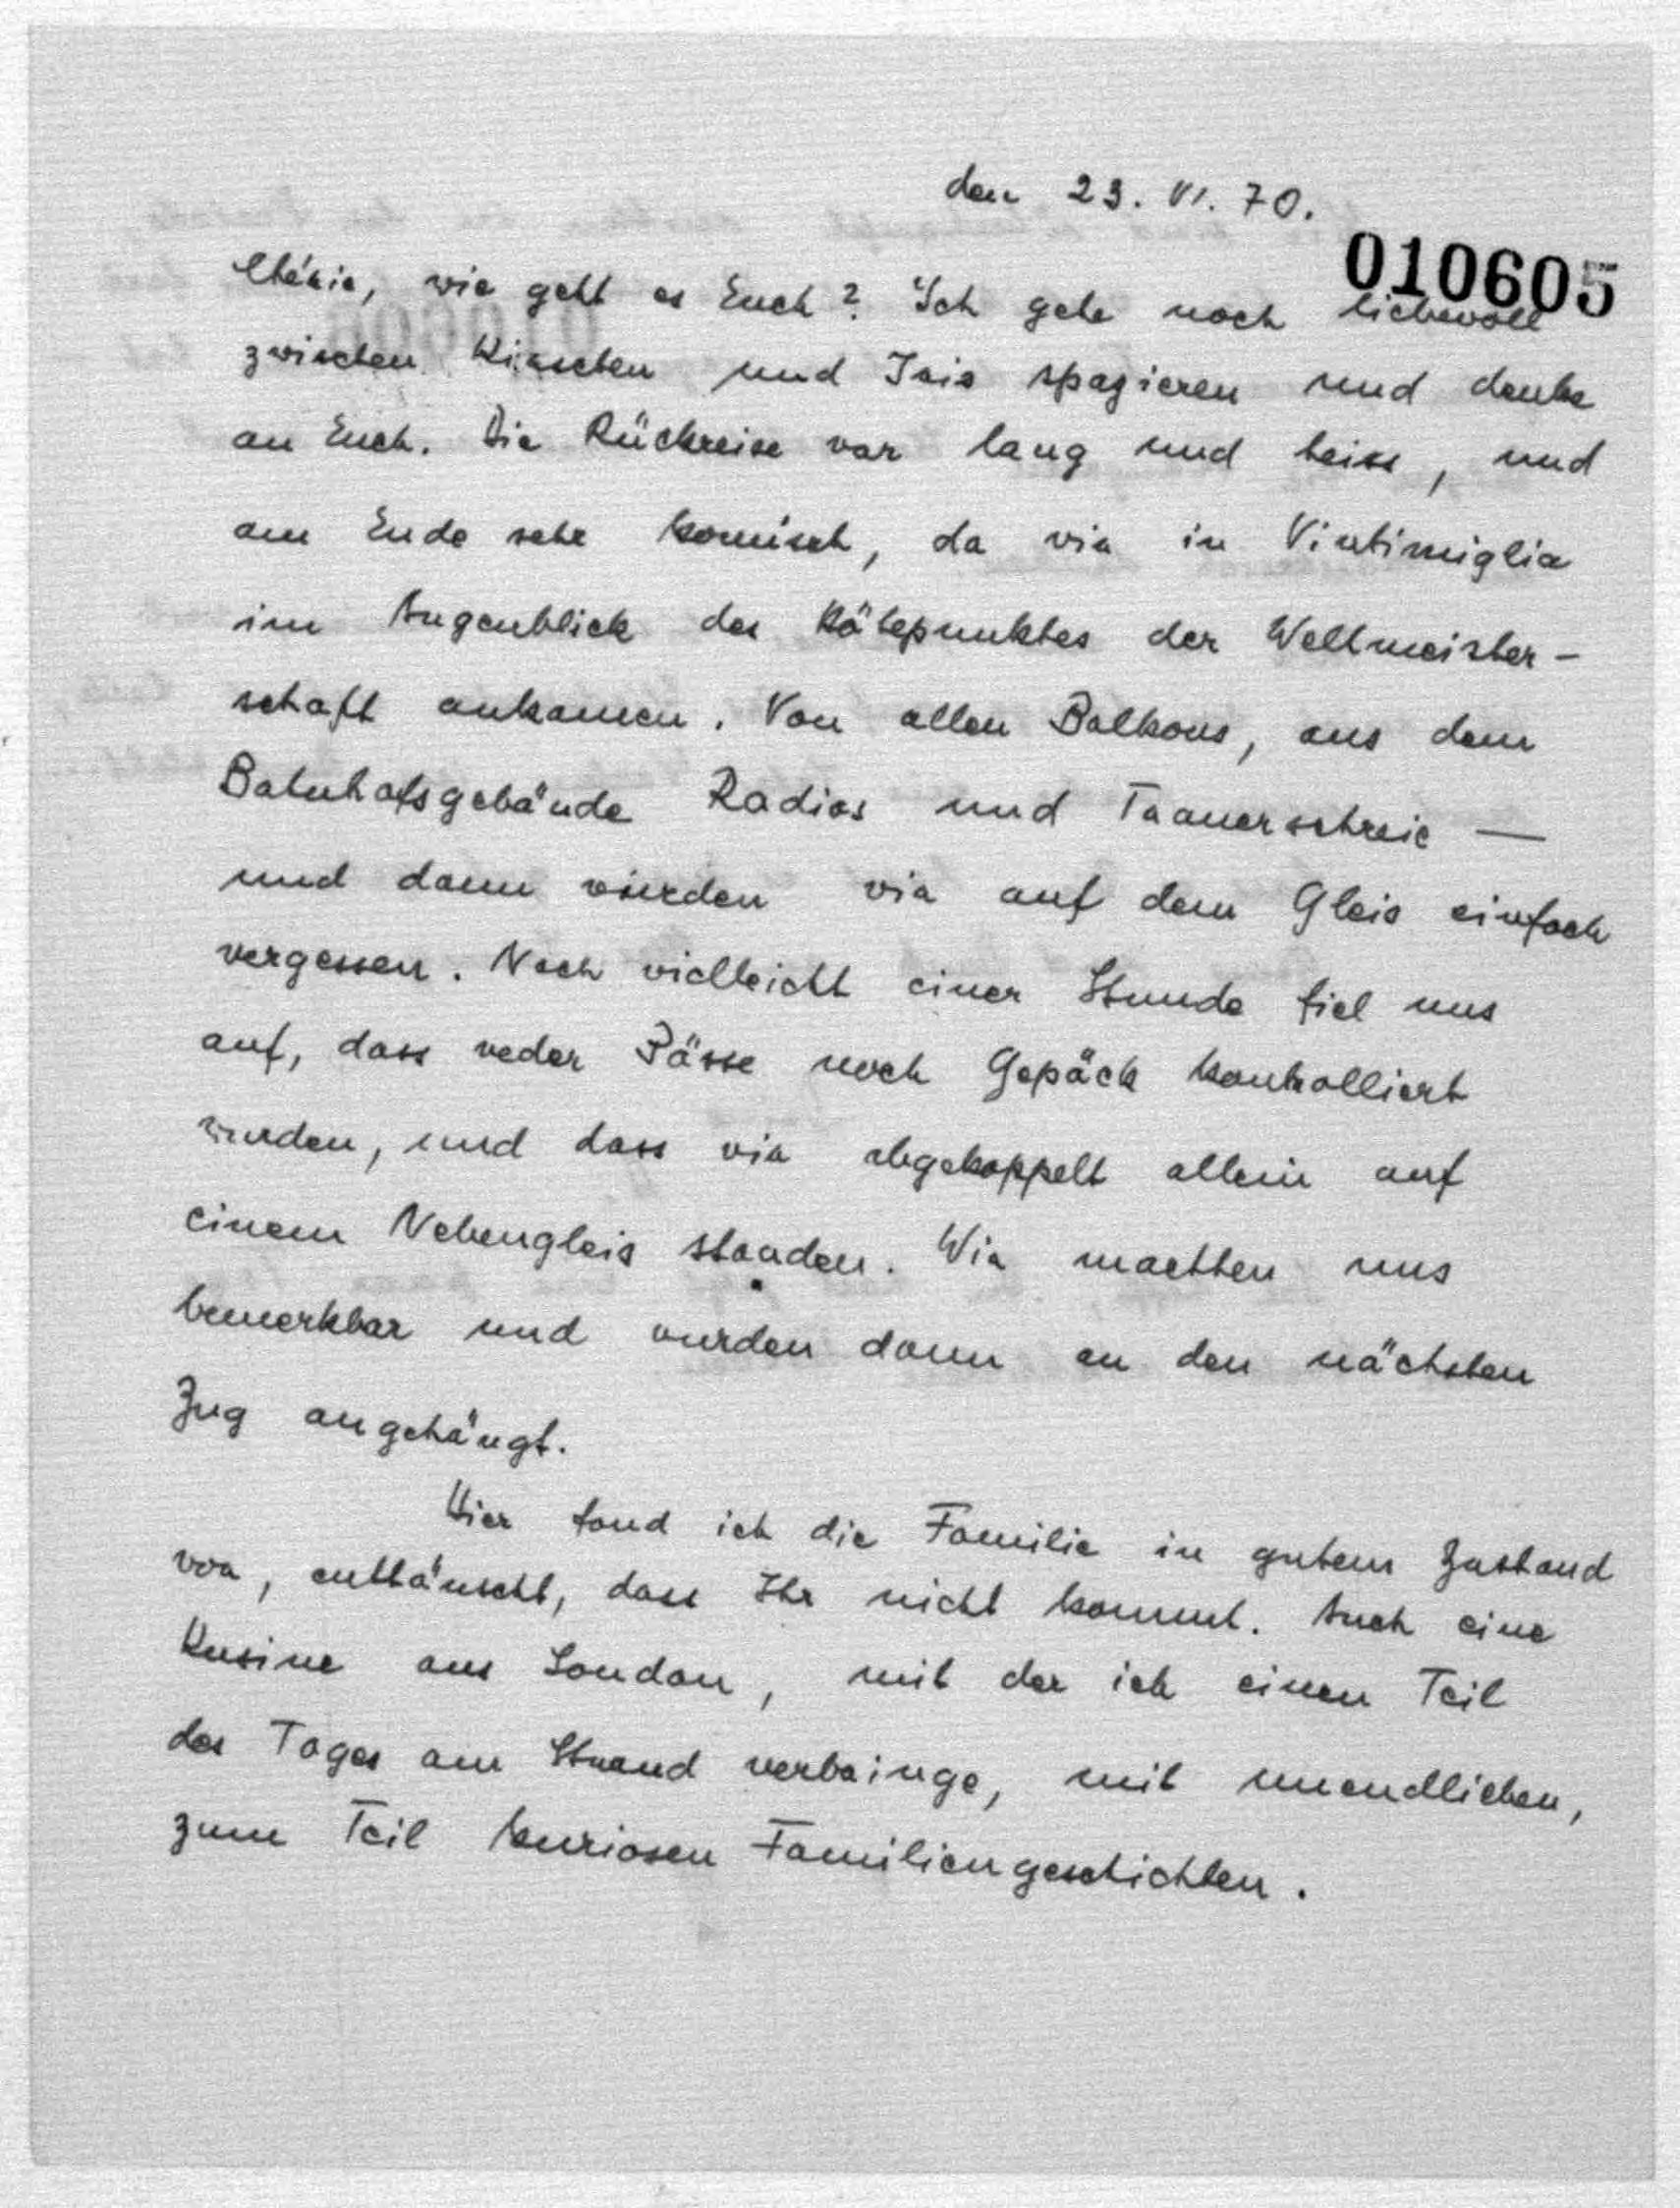 den 23. VI. 70.
010605
Chérie, wie geht es Euch? Ich gehe noch liebevoll
zwischen Kirschen und Iris spazieren und denke
an Euch. Die Rückreise war lang und heiss, und
am Ende sehr komisch, da wir in Vintimiglia
im Augenblick des Höhepunktes der Weltmeister-
schaft ankamen. Von allen Balkons, aus dem
Bahnhofsgebäude Radios und Trauerschreie —
und dann wurden wir auf dem Gleis einfach
vergessen. Nach vielleicht einer Stunde fiel uns
auf, dass weder Pässe noch Gepäck kontrolliert
wurden, und dass wir abgekoppelt allein auf
einem Nebengleis standen. Wir machten uns
bemerkbar und wurden dann an den nächsten
Zug angehängt.
Hier fand ich die Familie in gutem Zustand
vor, enttäuscht, dass Ihr nicht kommt. Auch eine
Kusine aus London, mit der ich einen Teil
des Tages am Strand verbringe, mit unendlichen,
zum Teil kuriosen Familiengeschichten.